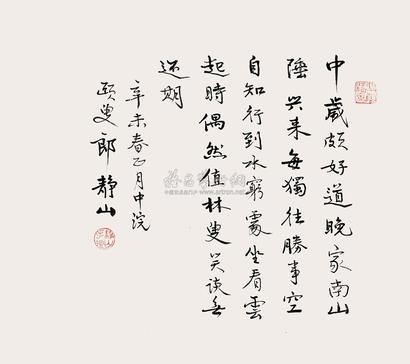 中歲頗好道晚家南山
陲興来每獨往勝事空
自知行到水窮處坐看雲
起時偶然值林叟笑談無
還期
辛未春正月中浣
頤叟郎静山